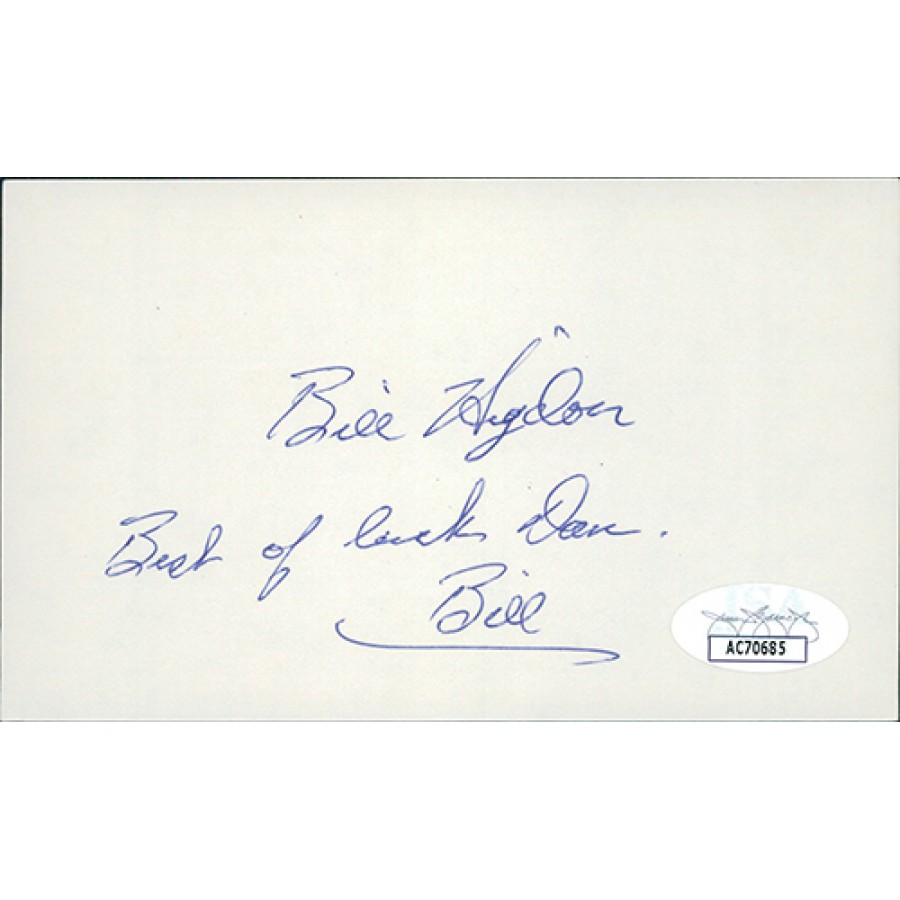 Bill Higdon
Best of luck Dan.
Bill
JSA
AC70685